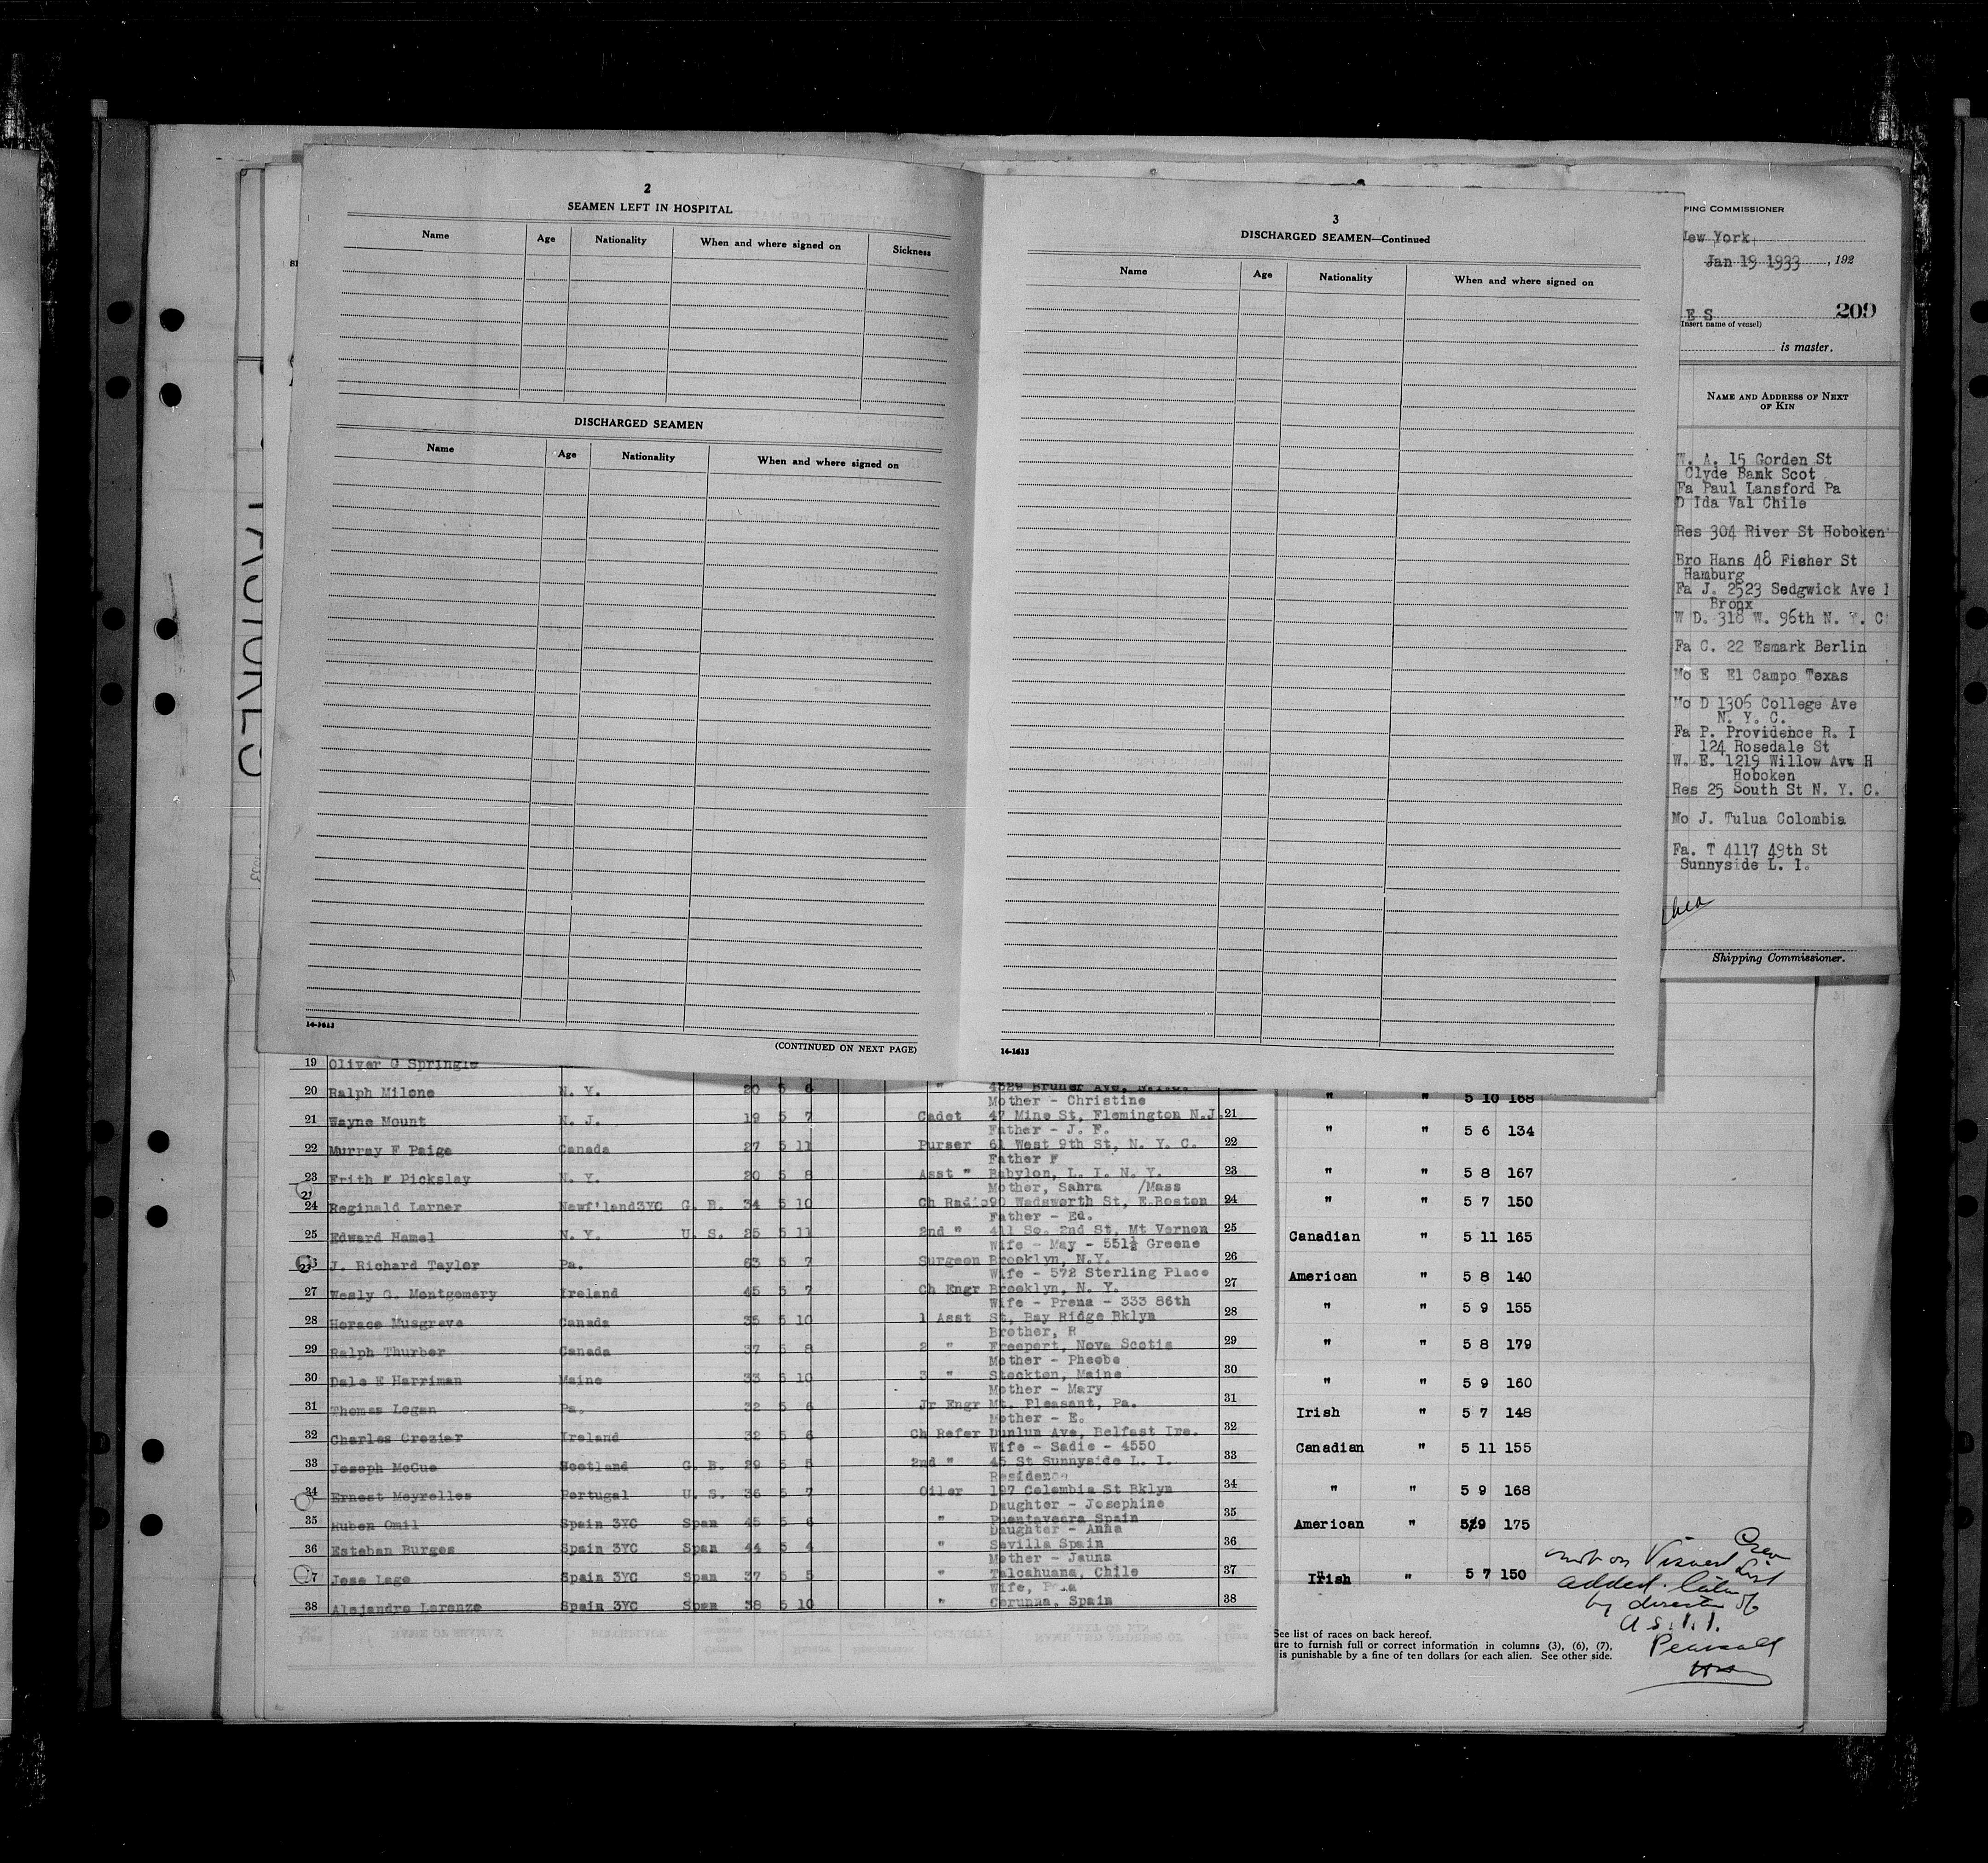 2
SEAMEN LEFT IN HOSPITAL
Name Age Nationality When and where signed on Sickness
DISCHARGED SEAMEN
Name Age Nationality When and where signed on
14-1613
(CONTINUED ON NEXT PAGE)
3
DISCHARGED SEAMEN—Continued
Name Age Nationality When and where signed on
14-1613
PING COMMISSIONER
New York
Jan 19 1933, 192
E S
209
(Insert name of vessel)
is master.
NAME AND ADDRESS OF NEXT
OF KIN
W. A. 15 Gorden St
Clyde Bank Scot
Fa Paul Lansford Pa
D Ida Val Chile
Res 304 River St Hoboken
Bro Hans 48 Fisher St
Hamburg
Fa J. 2523 Sedgwick Ave
Bronx
W D. 318 W. 96th N. Y. C
Fa C. 22 Esmark Berlin
Mo E El Campo Texas
Mo D 1306 College Ave
N. Y. C.
Fa P. Providence R. I
124 Rosedale St
W. E. 1219 Willow Ave H
Hoboken
Res 25 South St N. Y. C.
Mo J. Tulua Colombia
Fa. T 4117 49th St
Sunnyside L. I.
Shipping Commissioner.
19 Oliver G Springle
20 Ralph Milone N. Y. 20 5 6 " 4329 Bruner Ave, N.Y.C.
Mother - Christine
21 Wayne Mount N. J. 19 5 7 Cadet 47 Mine St, Flemington N.J. 21
Father - J. F.
22 Murray F Paige Canada 27 5 11 Purser 61 West 9th St, N. Y. C. 22
Father F
23 Frith F Pickslay N. Y. 20 5 8 Asst " Babylon, L. I. N. Y. 23
Mother, Sahra /Mass
24 Reginald Larner Newf'land3YC G. B. 34 5 10 Ch Radio 90 Wadsworth St, E.Boston 24
Father - Ed.
25 Edward Hamel N. Y. U. S. 25 5 11 2nd " 411 So. 2nd St, Mt Vernon 25
Wife - May - 551½ Greene
J. Richard Taylor Pa. 63 5 7 Surgeon Brooklyn, N.Y. 26
Wife - 572 Sterling Place
27 Wesly G. Montgomery Ireland 45 5 7 Ch Engr Brooklyn, N. Y. 27
Wife - Prena - 333 86th
28 Horace Musgrave Canada 35 5 10 1 Asst St, Bay Ridge Bklyn 28
Brother, R
29 Ralph Thurber Canada 37 5 8 2 " Freeport, Nova Scotia 29
Mother - Pheobe
30 Dale E Harriman Maine 33 5 10 3 " Stockton, Maine 30
Mother - Mary
31 Thomas Logan Pa. 32 5 6 Jr Engr Mt. Pleasant, Pa. 31
Mother - E.
32 Charles Crozier Ireland 32 5 6 Ch Refer Dunlun Ave, Belfast Ire. 32
Wife - Sadie - 4550
33 Joseph McCue Scotland G. B. 29 5 5 2nd " 45 St Sunnyside L. I. 33
Residence
34 Ernest Meyrelles Portugal U. S. 36 5 7 Oiler 197 Columbia St Bklyn 34
Daughter - Josephine
35 Ruben Omil Spain 3YC Span 45 5 6 " Puentaveara Spain 35
Daughter - Anna
36 Esteban Burges Spain 3YC Span 44 5 4 " Sevilla Spain 36
Mother - Jauna
37 Jose Lago Spain 3YC Span 37 5 5 " Talcahuana, Chile 37
Wife,
38 Alejandro Lorenzo Spain 3YC Span 38 5 10 " Corunna, Spain 38
" " 5 10 168
" " 5 6 134
" " 5 8 167
" " 5 7 150
Canadian " 5 11 165
American " 5 8 140
" " 5 9 155
" " 5 8 179
" " 5 9 160
Irish " 5 7 148
Canadian " 5 11 155
" " 5 9 168
American " 5 9 175
Irish " 5 7 150
not on Visaed Crew
List
added
by direction of
U.S.I.I.
Pearsall
See list of races on back hereof.
ure to furnish full or correct information in columns (3), (6), (7),
is punishable by a fine of ten dollars for each alien. See other side.